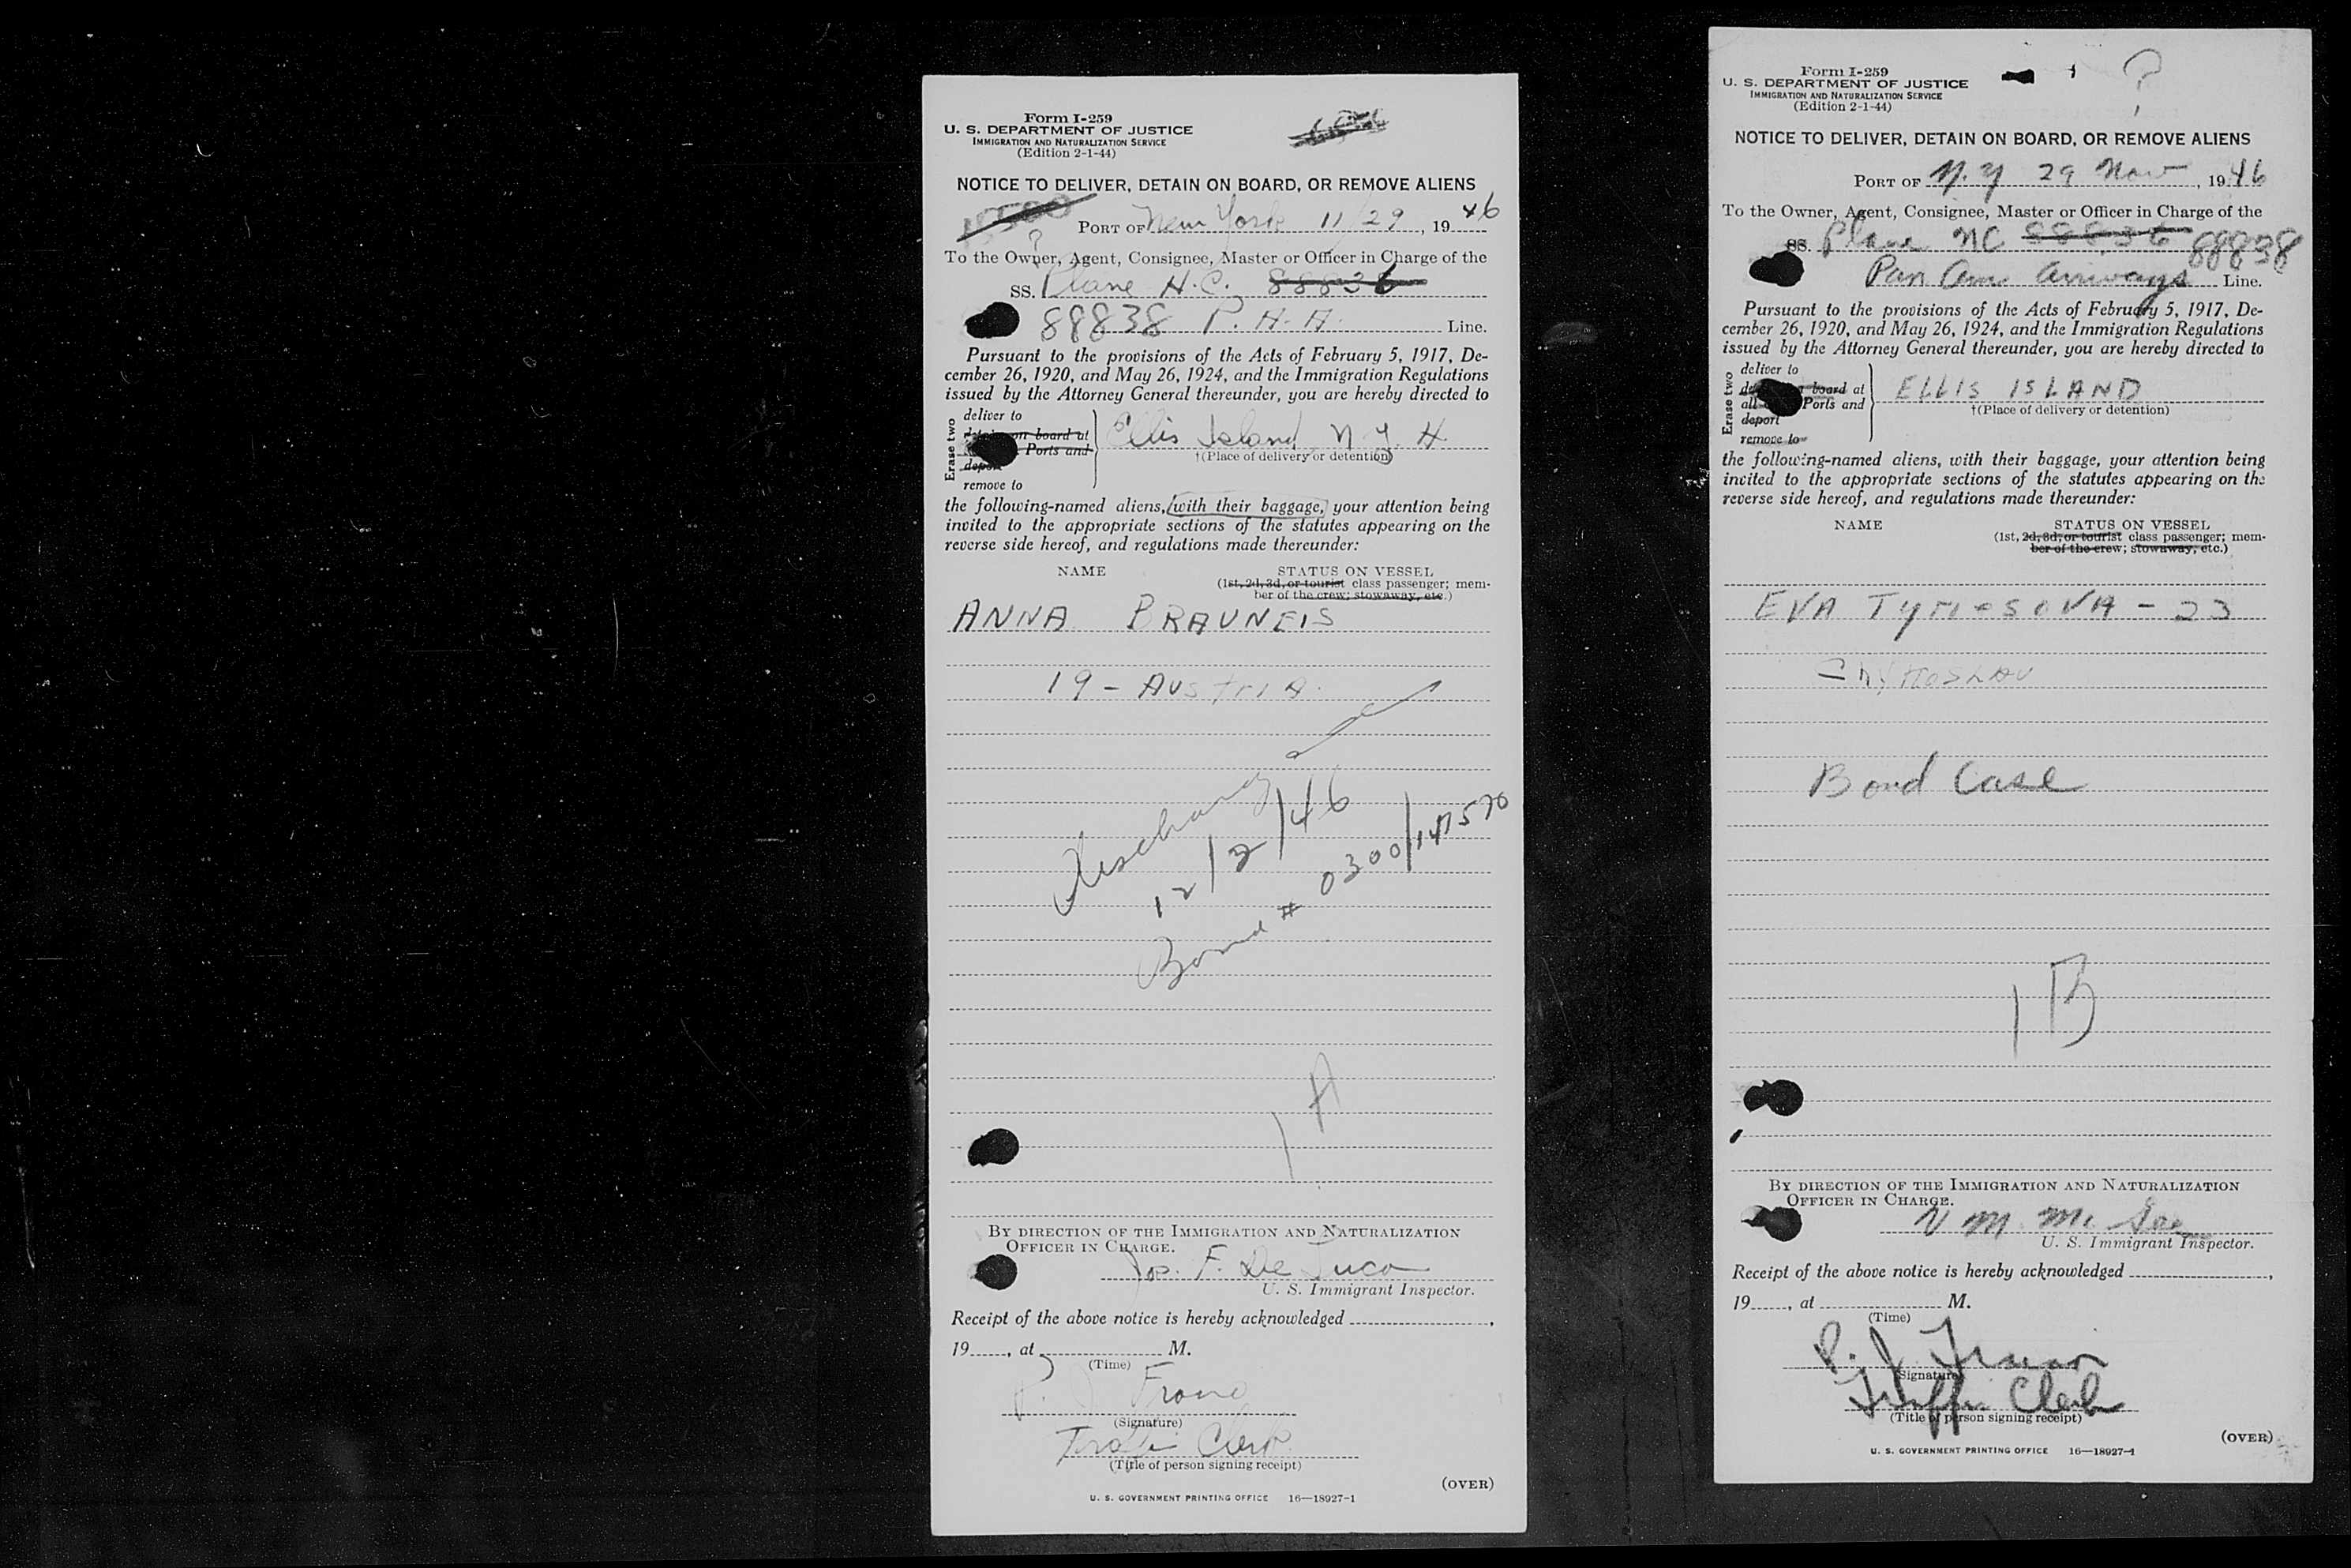 Form I-259
U. S. DEPARTMENT OF JUSTICE
IMMIGRATION AND NATURALIZATION SERVICE
(Edition 2-1-44)
NOTICE TO DELIVER, DETAIN ON BOARD, OR REMOVE ALIENS
PORT OF New York 11/29, 1946
To the Owner, Agent, Consignee, Master or Officer in Charge of the
SS. Plane N.C. 88836
88838 P. A. A. Line.
Pursuant to the provisions of the Acts of February 5, 1917, De-
cember 26, 1920, and May 26, 1924, and the Immigration Regulations
issued by the Attorney General thereunder, you are hereby directed to
Erase two
deliver to
on board at
Ports and
deport
remove to
Ellis Island N Y H
†(Place of delivery or detention)
the following-named aliens, with their baggage, your attention being
invited to the appropriate sections of the statutes appearing on the
reverse side hereof, and regulations made thereunder:
NAME STATUS ON VESSEL
(1st, 2d, 3d, or tourist class passenger; mem-
ber of the crew; stowaway, etc.)
ANNA BRAUNEIS
19 - AUSTRIA.
12/2/46
Bond # 0300/
1 A
BY DIRECTION OF THE IMMIGRATION AND NATURALIZATION
OFFICER IN CHARGE.
Jos. F. De Luca
U. S. Immigrant Inspector.
Receipt of the above notice is hereby acknowledged ,
19 , at M.
(Time)
P. J.
(Signature)
Traffic Clerk
(Title of person signing receipt)
(OVER)
U. S. GOVERNMENT PRINTING OFFICE 16—18927-1
Form I-259
U. S. DEPARTMENT OF JUSTICE
IMMIGRATION AND NATURALIZATION SERVICE
(Edition 2-1-44)
?
NOTICE TO DELIVER, DETAIN ON BOARD, OR REMOVE ALIENS
PORT OF N.Y 29 Nov, 1946
To the Owner, Agent, Consignee, Master or Officer in Charge of the
SS. Plane NC 88836 88838
Pan Am Airways Line.
Pursuant to the provisions of the Acts of February 5, 1917, De-
cember 26, 1920, and May 26, 1924, and the Immigration Regulations
issued by the Attorney General thereunder, you are hereby directed to
Erase two
deliver to
board at
all Ports and
deport
remove to
ELLIS ISLAND
†(Place of delivery or detention)
the following-named aliens, with their baggage, your attention being
invited to the appropriate sections of the statutes appearing on the
reverse side hereof, and regulations made thereunder:
NAME STATUS ON VESSEL
(1st, 2d, 3d, or tourist class passenger; mem-
ber of the crew; stowaway, etc.)
EVA - 23
Bond Case
1 B
BY DIRECTION OF THE IMMIGRATION AND NATURALIZATION
OFFICER IN CHARGE.
U. S. Immigrant Inspector.
Receipt of the above notice is hereby acknowledged ,
19 , at M.
(Time)
P. J.
(Signature)
Traffic Clerk
(Title of person signing receipt)
(OVER)
U. S. GOVERNMENT PRINTING OFFICE 16—18927-1